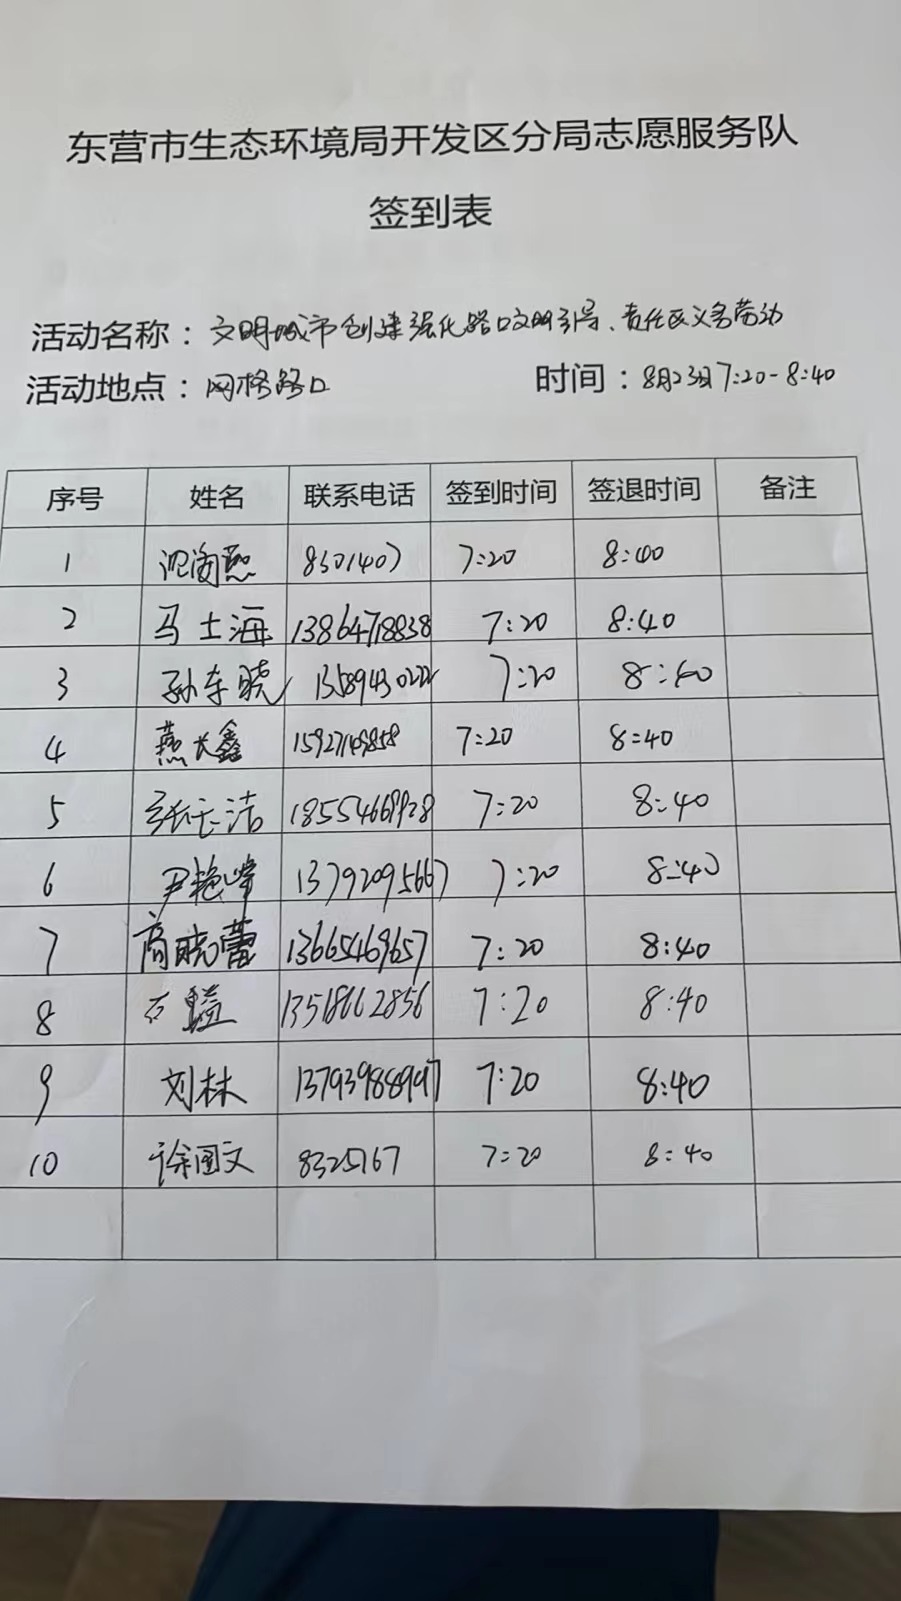 东营市生态环境局开发区分局志愿服务队
签到表
活动名称：文明城市创建强化路口文明引导、责任区义务劳动
活动地点：网格路口 时间：8月23日7:20-8:40
序号 姓名 联系电话 签到时间 签退时间 备注
1 8301407 7:20 8:40
2 马士海 13864718838 7:20 8:40
3 孙东晓 13589430222 7:20 8:40
4 燕大鑫 7:20 8:40
5 张云洁 7:20 8:40
6 尹艳峰 13792095667 7:20 8:40
7 商晓蕾 13665469657 7:20 8:40
8 石 13518662856 7:20 8:40
9 刘林 7:20 8:40
10 徐图文 8325767 7:20 8:40